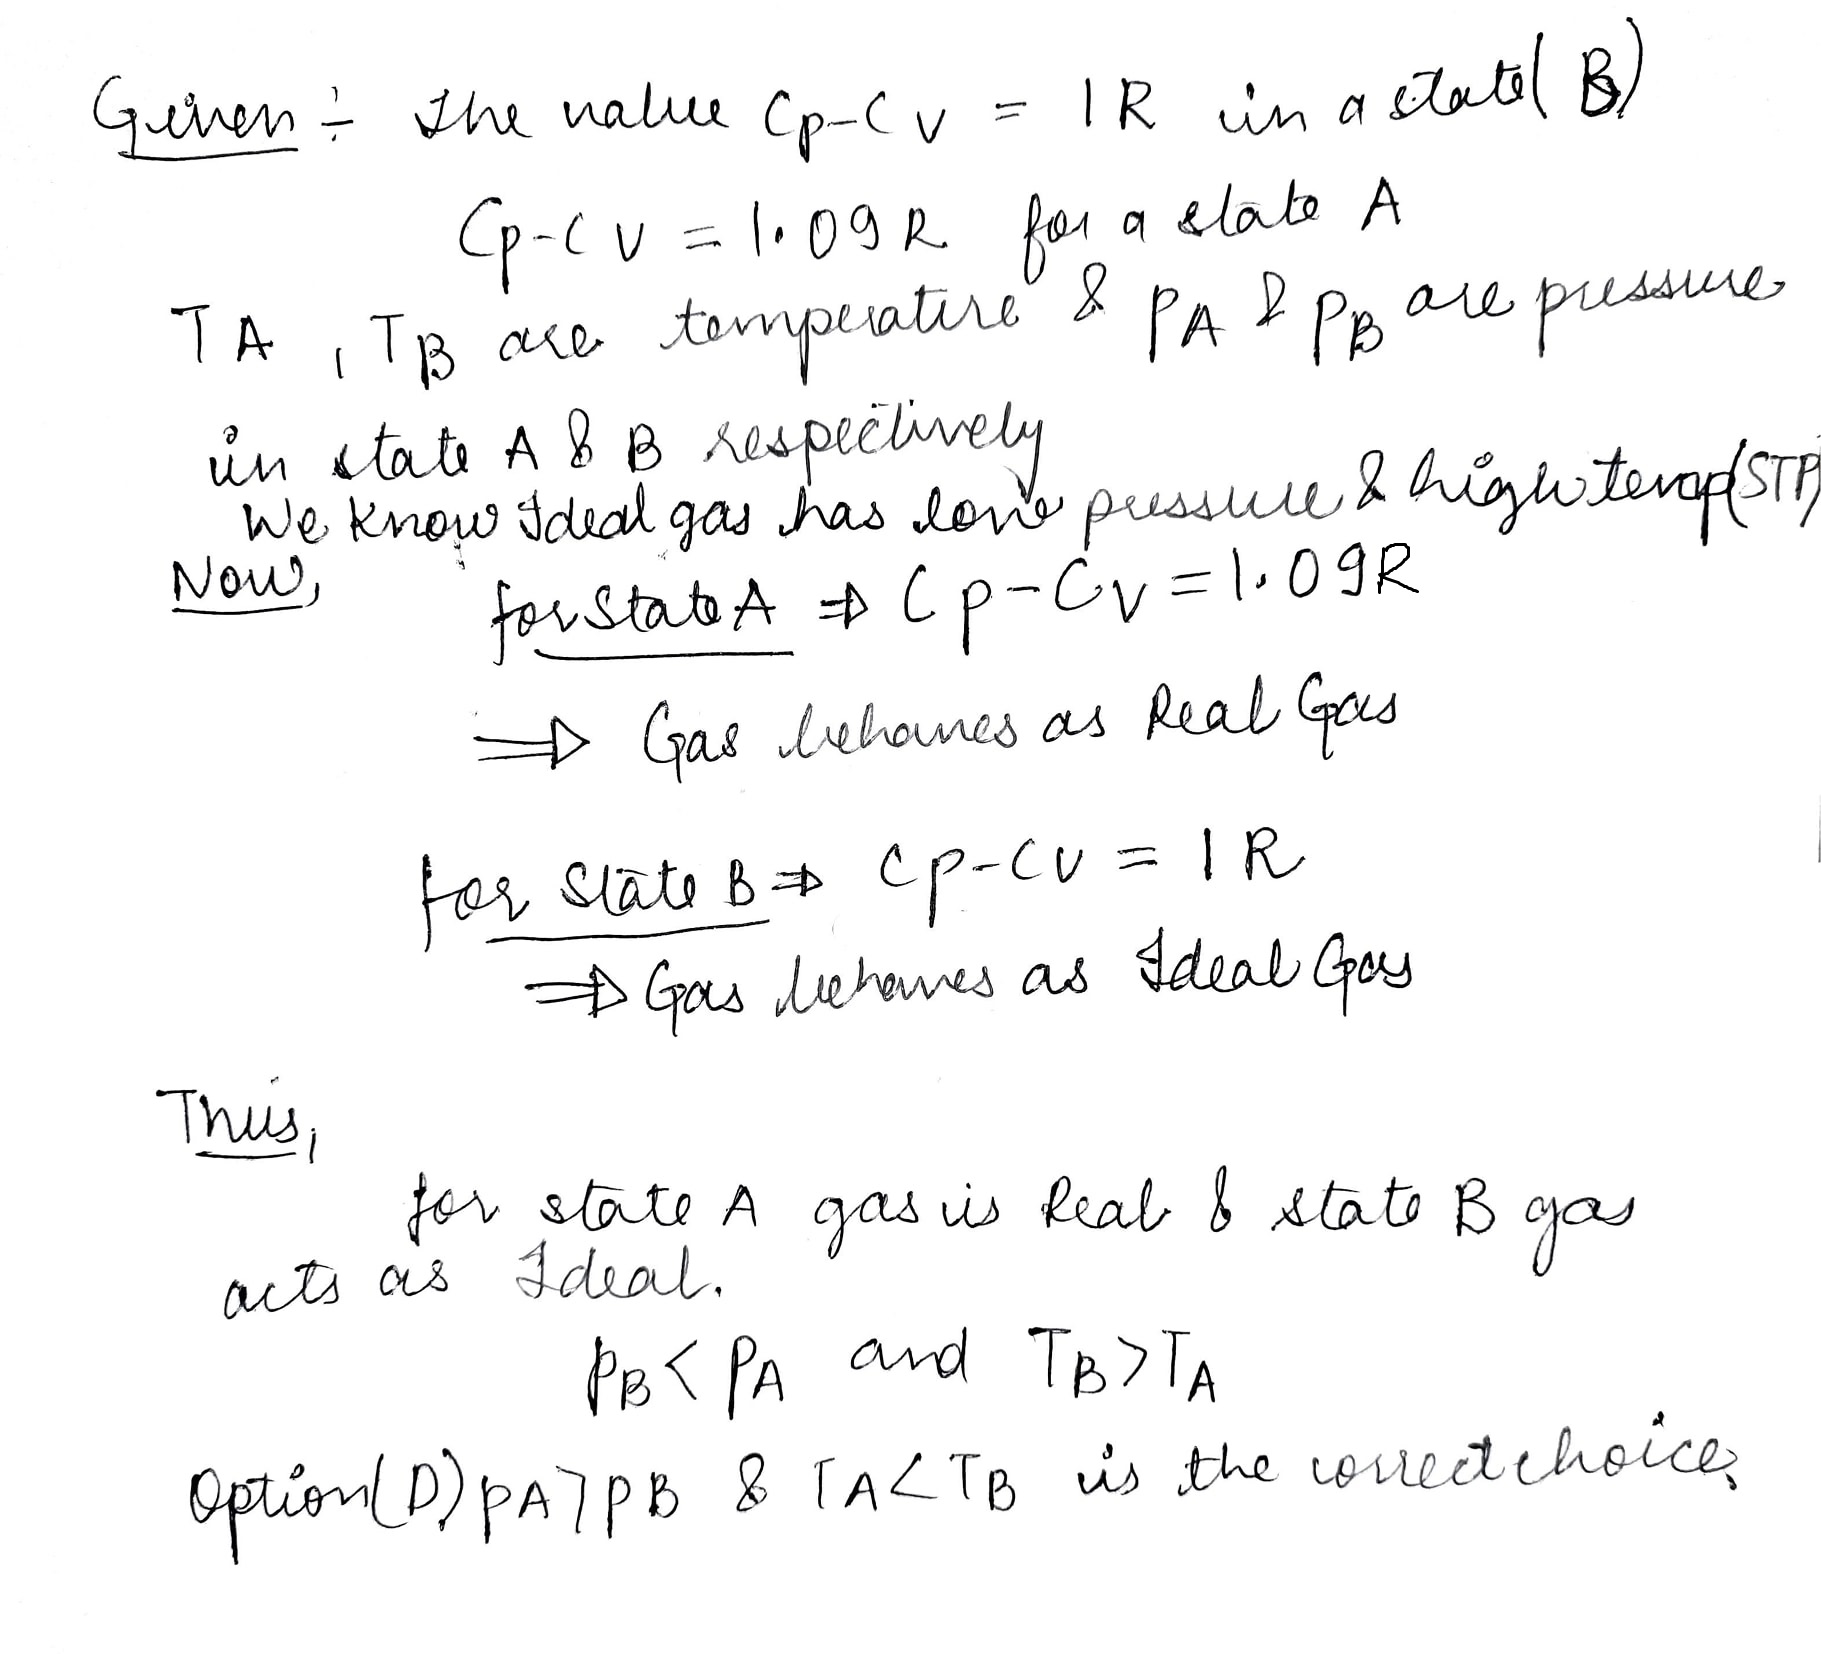 Given ÷ the value Cp-Cv = 1R in a state (B)
Cp-Cv = 1.09R for a state A
TA, TB are temperature & PA & PB are pressure
in state A & B respectively
We know Ideal gas has low pressure & high temp(STP)
Now,
for State A ⇒ Cp-Cv = 1.09R
⇒ Gas behaves as Real Gas
for State B ⇒ Cp-Cv = 1R
⇒ Gas behaves as Ideal Gas
Thus,
for state A gas is Real & state B gas
acts as Ideal.
PB < PA and TB > TA
Option (D) PA > PB & TA < TB is the correct choice.